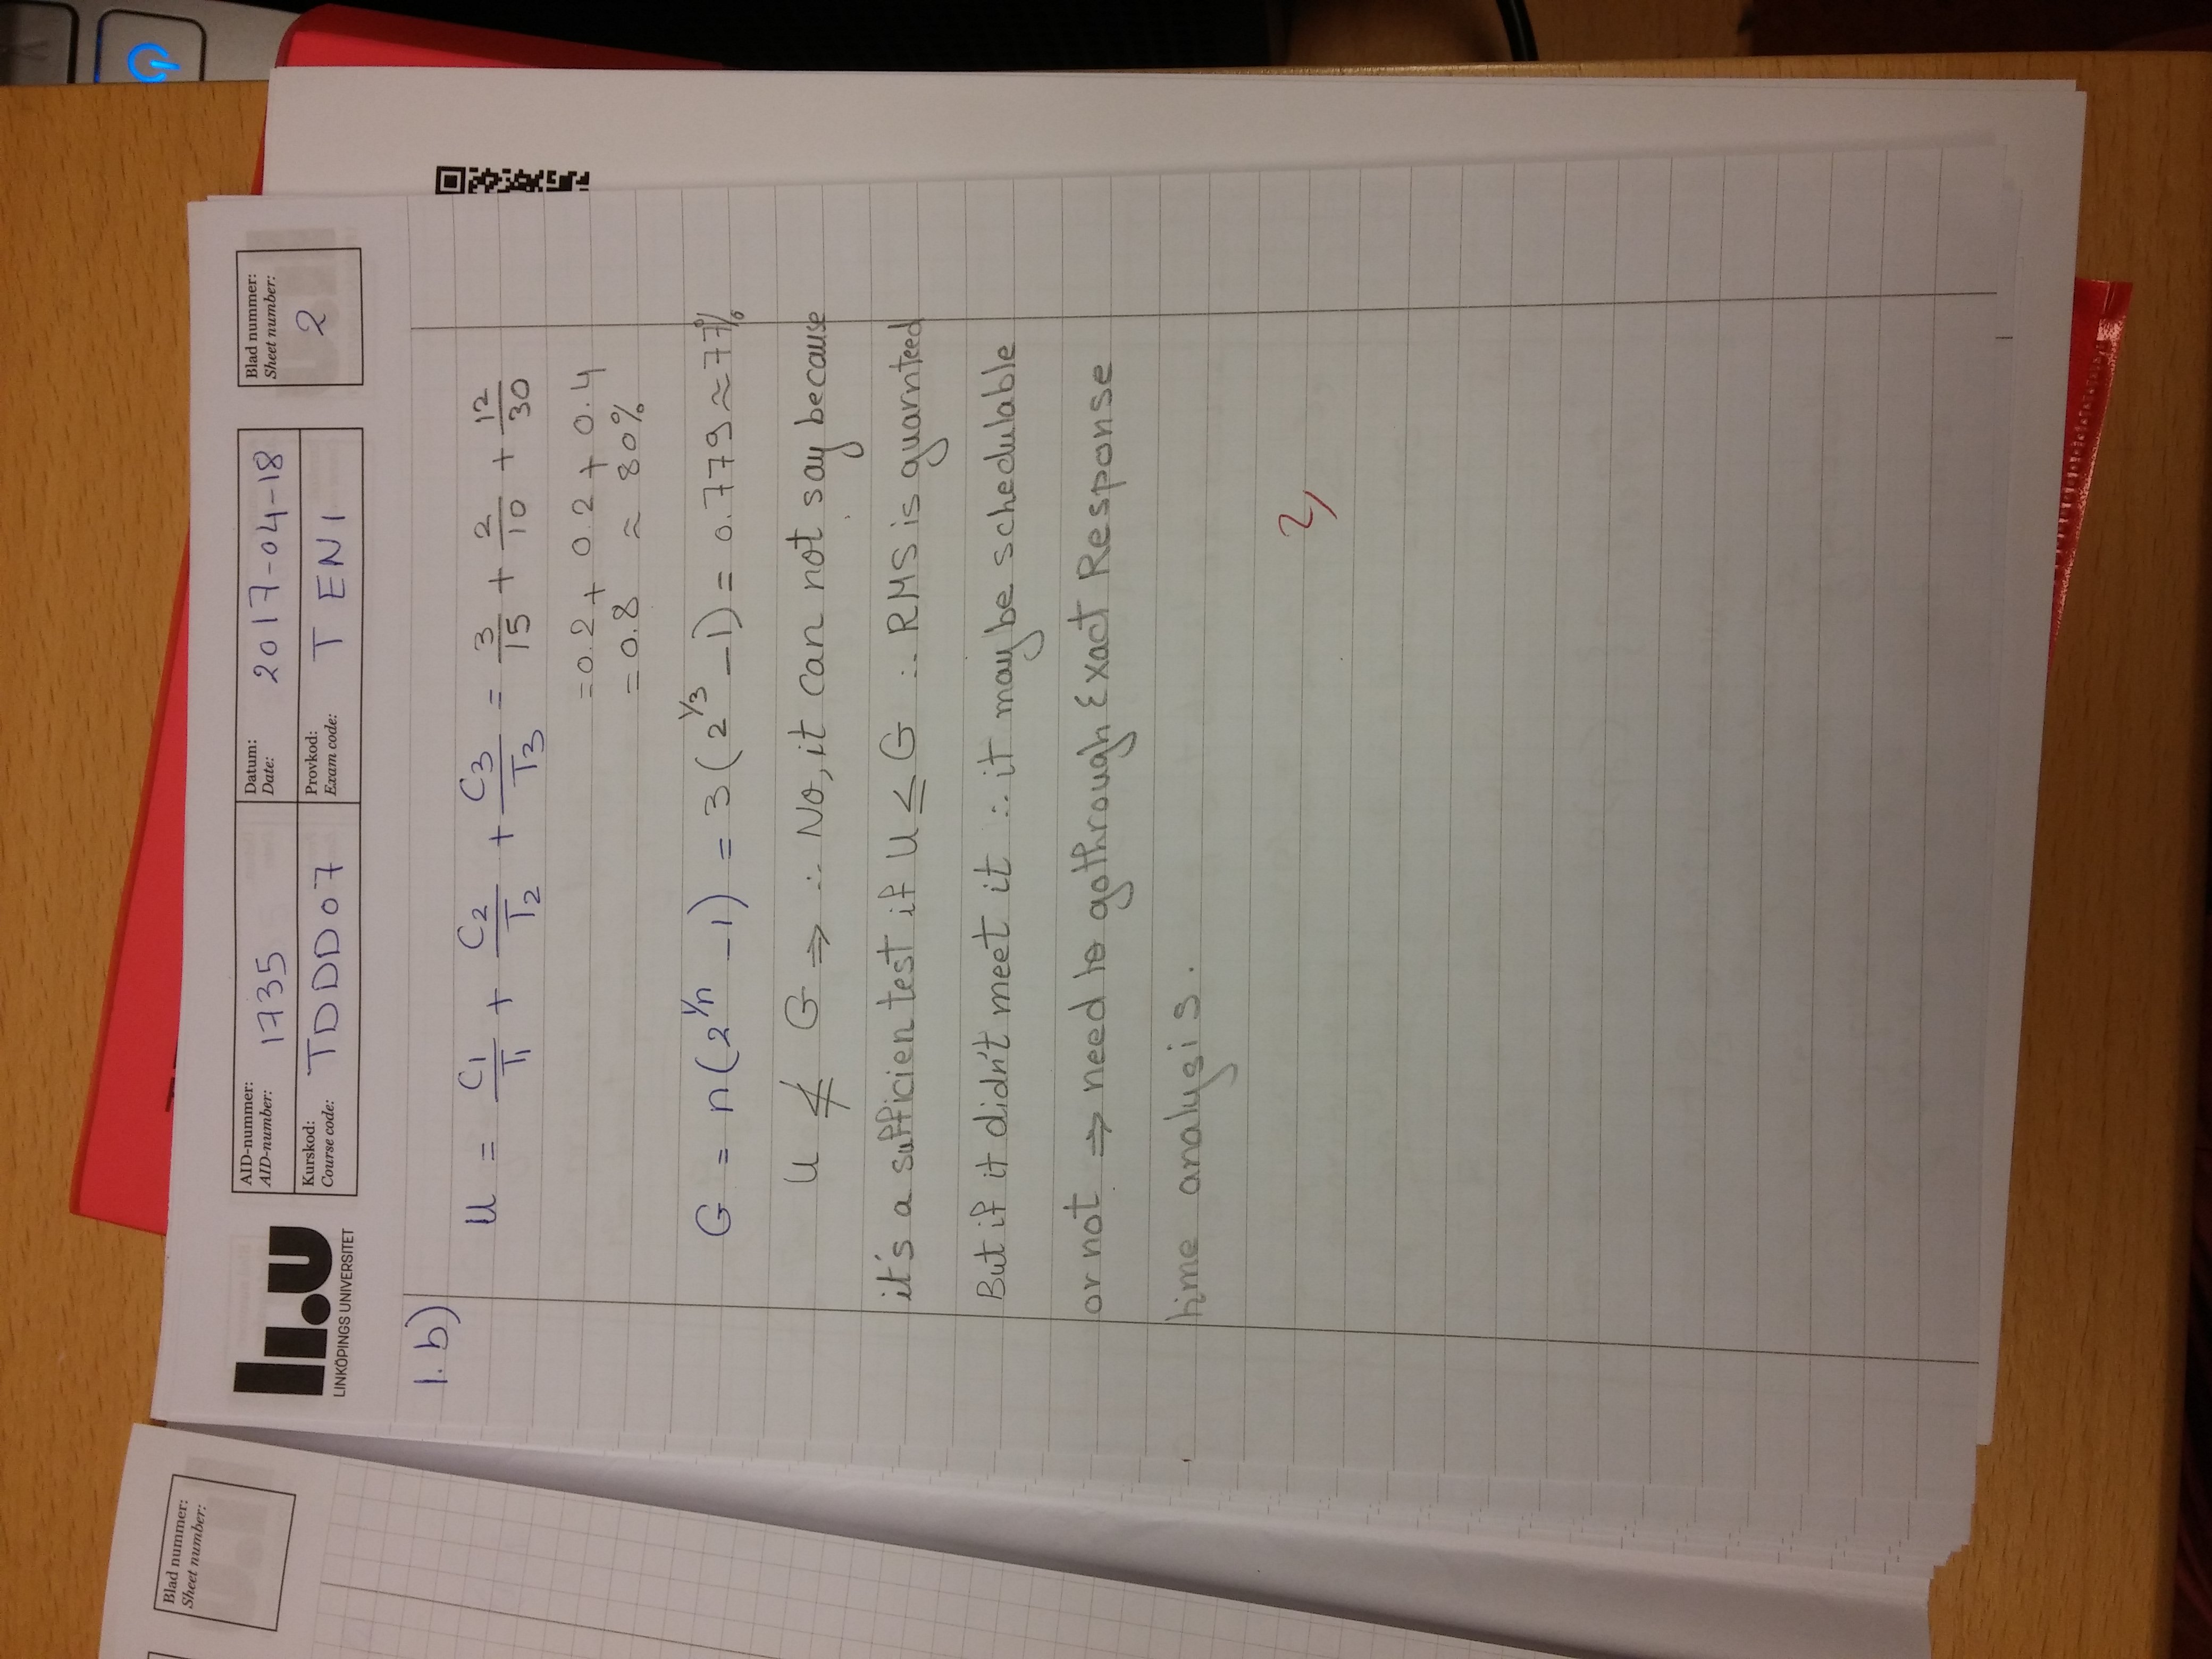 li.u
LINKÖPINGS UNIVERSITET
AID-nummer:
AID-number: 1735
Datum:
Date: 2017-04-18
Blad nummer:
Sheet number:
2
Kurskod:
Course code: TDDD07
Provkod:
Exam code: TEN1
1.b)
U = C1/T1 + C2/T2 + C3/T3 = 3/15 + 2/10 + 12/30
= 0.2 + 0.2 + 0.4
= 0.8 ≈ 80%
G = n(2^1/n - 1) = 3(2^1/3 - 1) = 0.779 ≈ 77%
U ≰ G ⇒ ∴ No, it can not say because
it's a sufficien test if U ≤ G ∴ RMS is guarnteed
But if it didn't meet it ∴ it may be schedulable
or not ⇒ need to go through Exact Response
time analysis.
2
Blad nummer:
Sheet number: